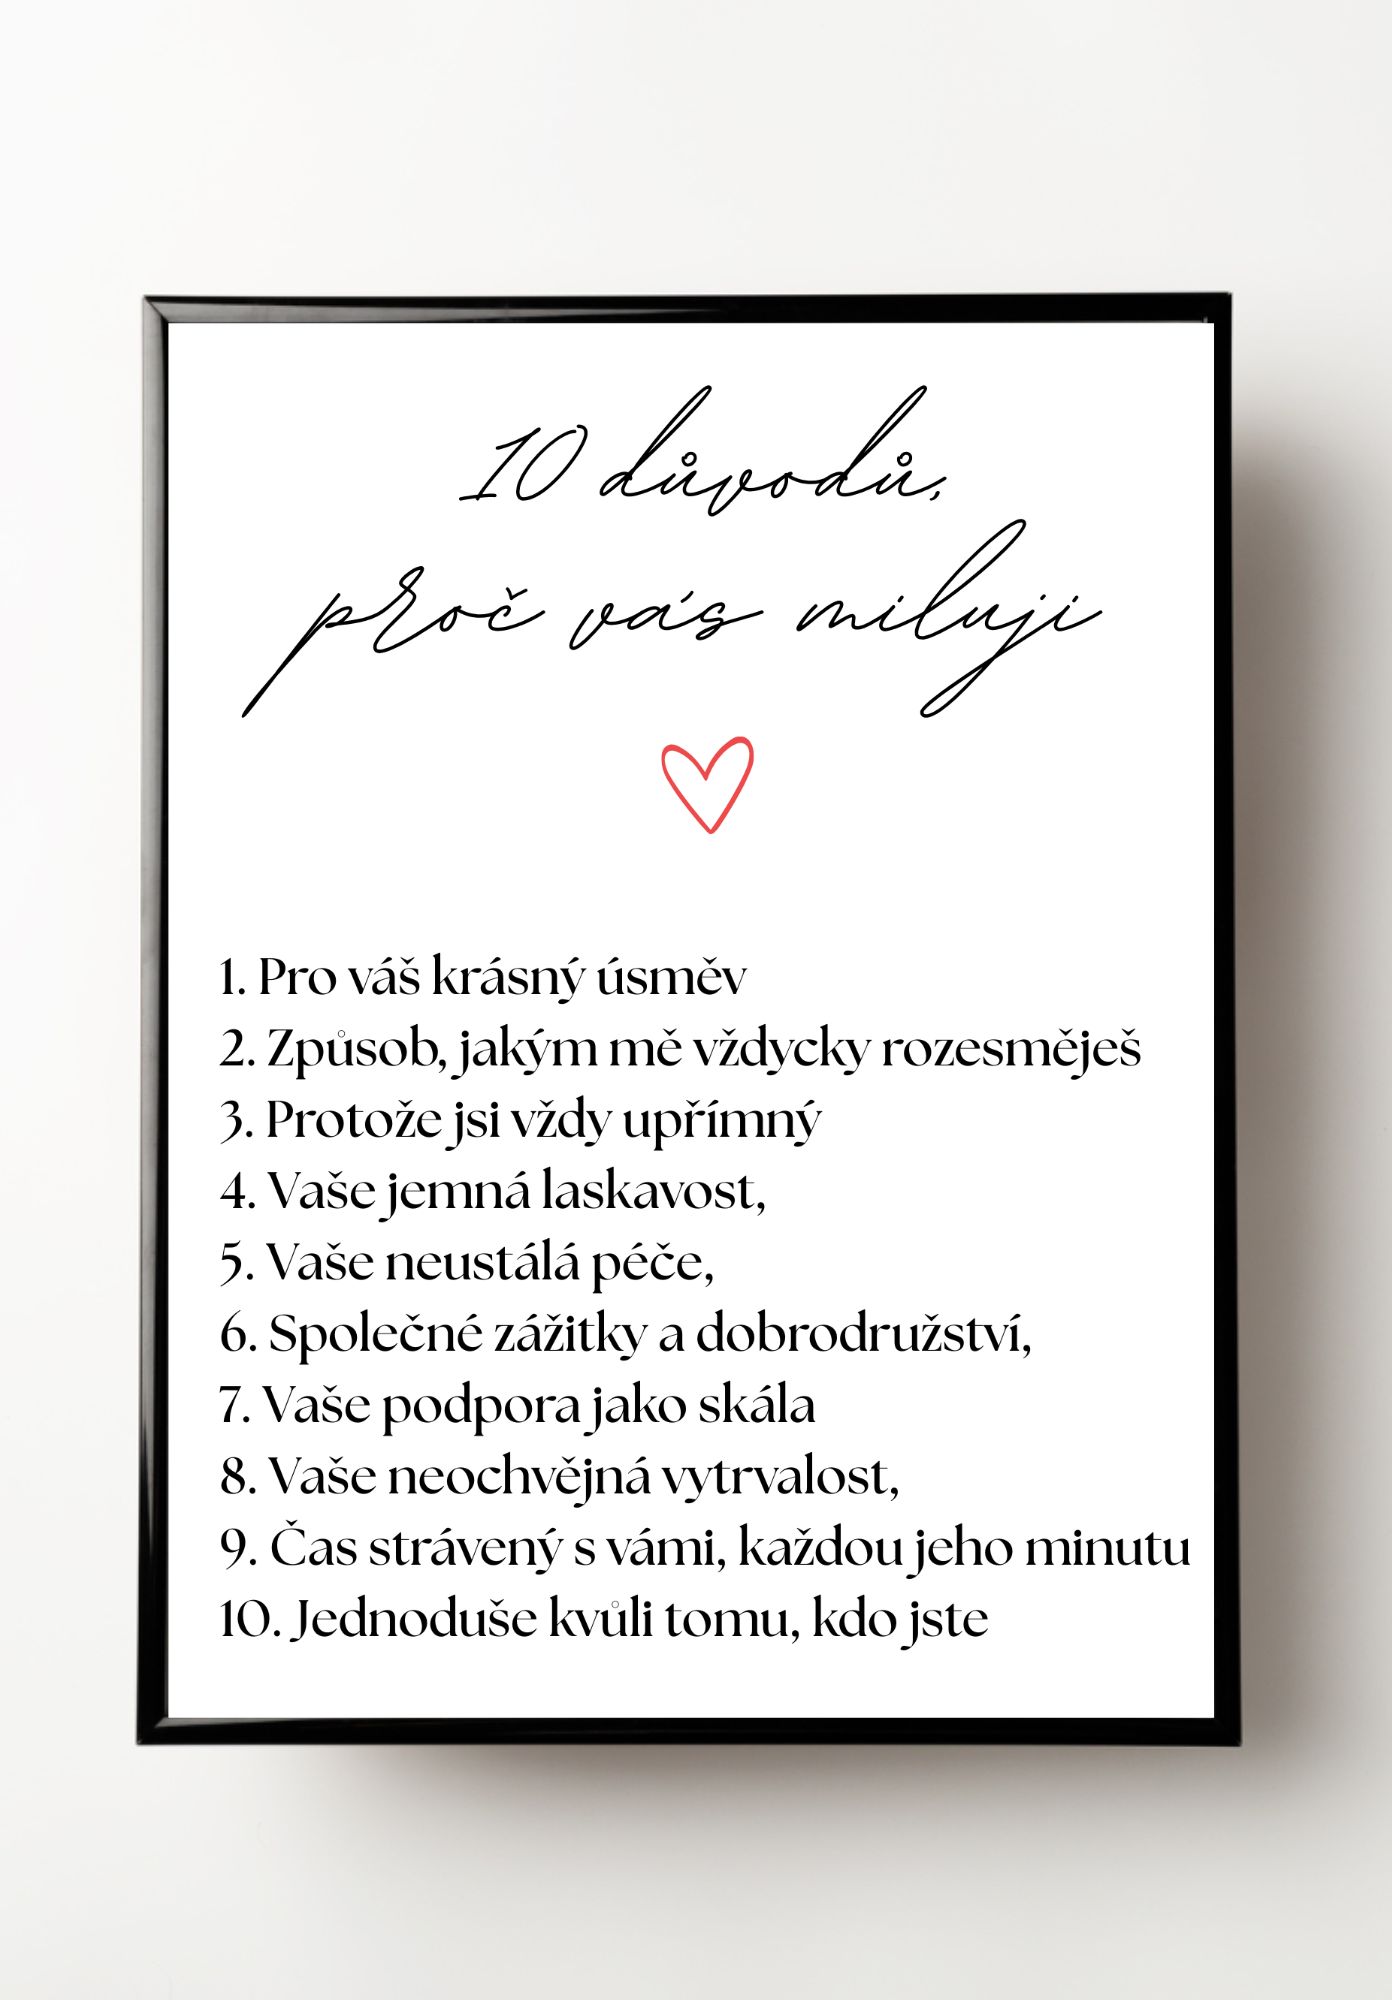 10 důvodů,
proč vás miluji
1. Pro váš krásný úsměv
2. Způsob, jakým mě vždycky rozesměješ
3. Protože jsi vždy upřímný
4. Vaše jemná laskavost,
5. Vaše neustálá péče,
6. Společné zážitky a dobrodružství,
7. Vaše podpora jako skála
8. Vaše neochvějná vytrvalost,
9. Čas strávený s vámi, každou jeho minutu
10. Jednoduše kvůli tomu, kdo jste